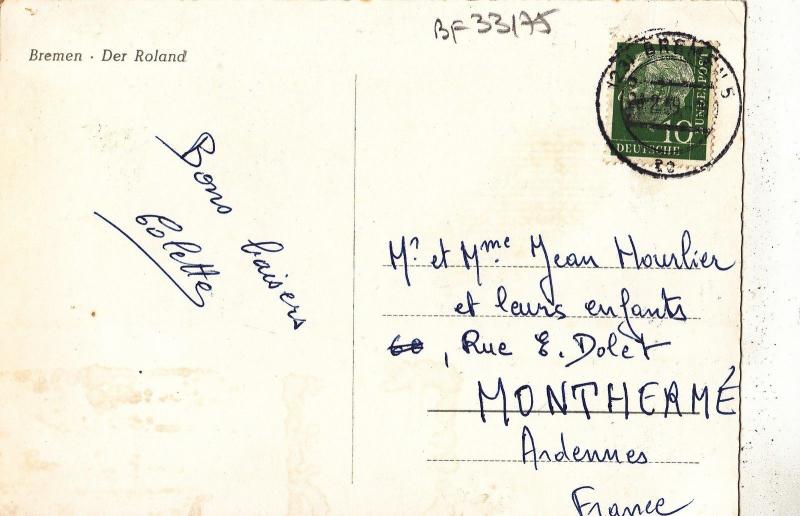 BF 33/75
Bremen · Der Roland
Bons baisers
Colette
10
DEUTSCHE
BUNDESPOST
Mr et Mme Jean Hourlier
et leurs enfants
60, Rue E. Dolet
MONTHERMÉ
Ardennes
France